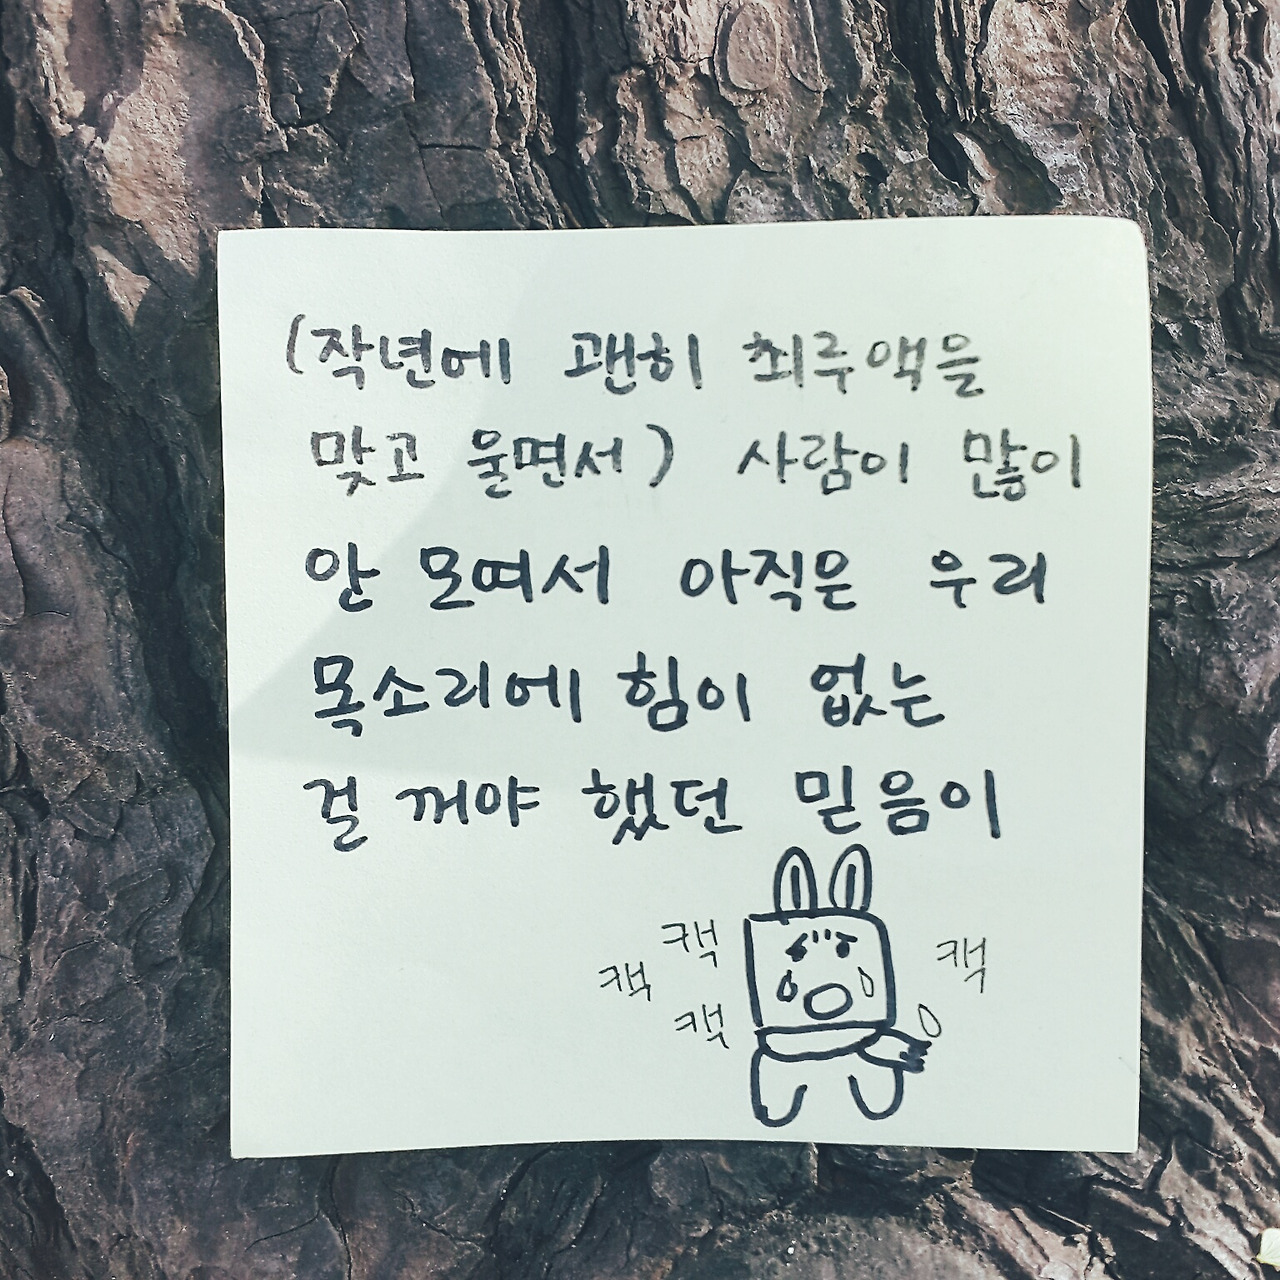 (작년에 괜히 최루액을
맞고 울면서) 사람이 많이
안 모여서 아직은 우리
목소리에 힘이 없는
걸 꺼야 했던 믿음이
캑
캑
캑
캑